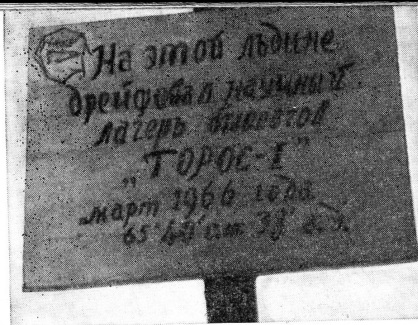 На этой льдине
дрейфовал научный
лагерь
"ТОРОС-I"
март 1966 года
65°40' с.ш.